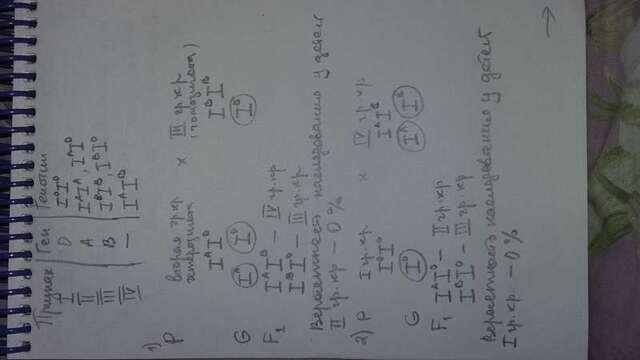 Признак Ген Генотип
I O I⁰I⁰
II A IᴬIᴬ, IᴬI⁰
III B IᴮIᴮ, IᴮI⁰
IV — IᴬIᴮ
1)
P вторая гр.кр x III гр.кр
гетерозигота (гомозигота)
IᴬI⁰ IᴮIᴮ
G Iᴬ I⁰ Iᴮ
F₁ IᴬIᴮ - IV гр.кр
IᴮI⁰ - III гр.кр
Вероятность наследования у детей
II гр.кр - 0%
2) P I гр.кр x IV гр.кр
I⁰I⁰ IᴬIᴮ
G I⁰ Iᴬ Iᴮ
F₁ IᴬI⁰ - II гр.кр
IᴮI⁰ - III гр.кр
Вероятность наследования у детей
I гр.кр - 0%
→